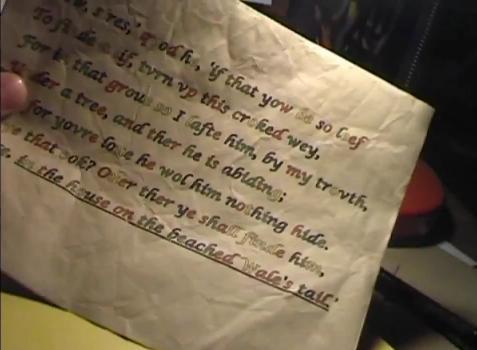 sires,' 'if that yow be so leef
To if, tvrn vp this croked wey,
For in that so I lafte him, by my trovth,
a tree, and ther he is abiding;
for yovre he wol him nothing hide.
that ook? ther ye shall finde him,
in the house on the beached Wale's tail'